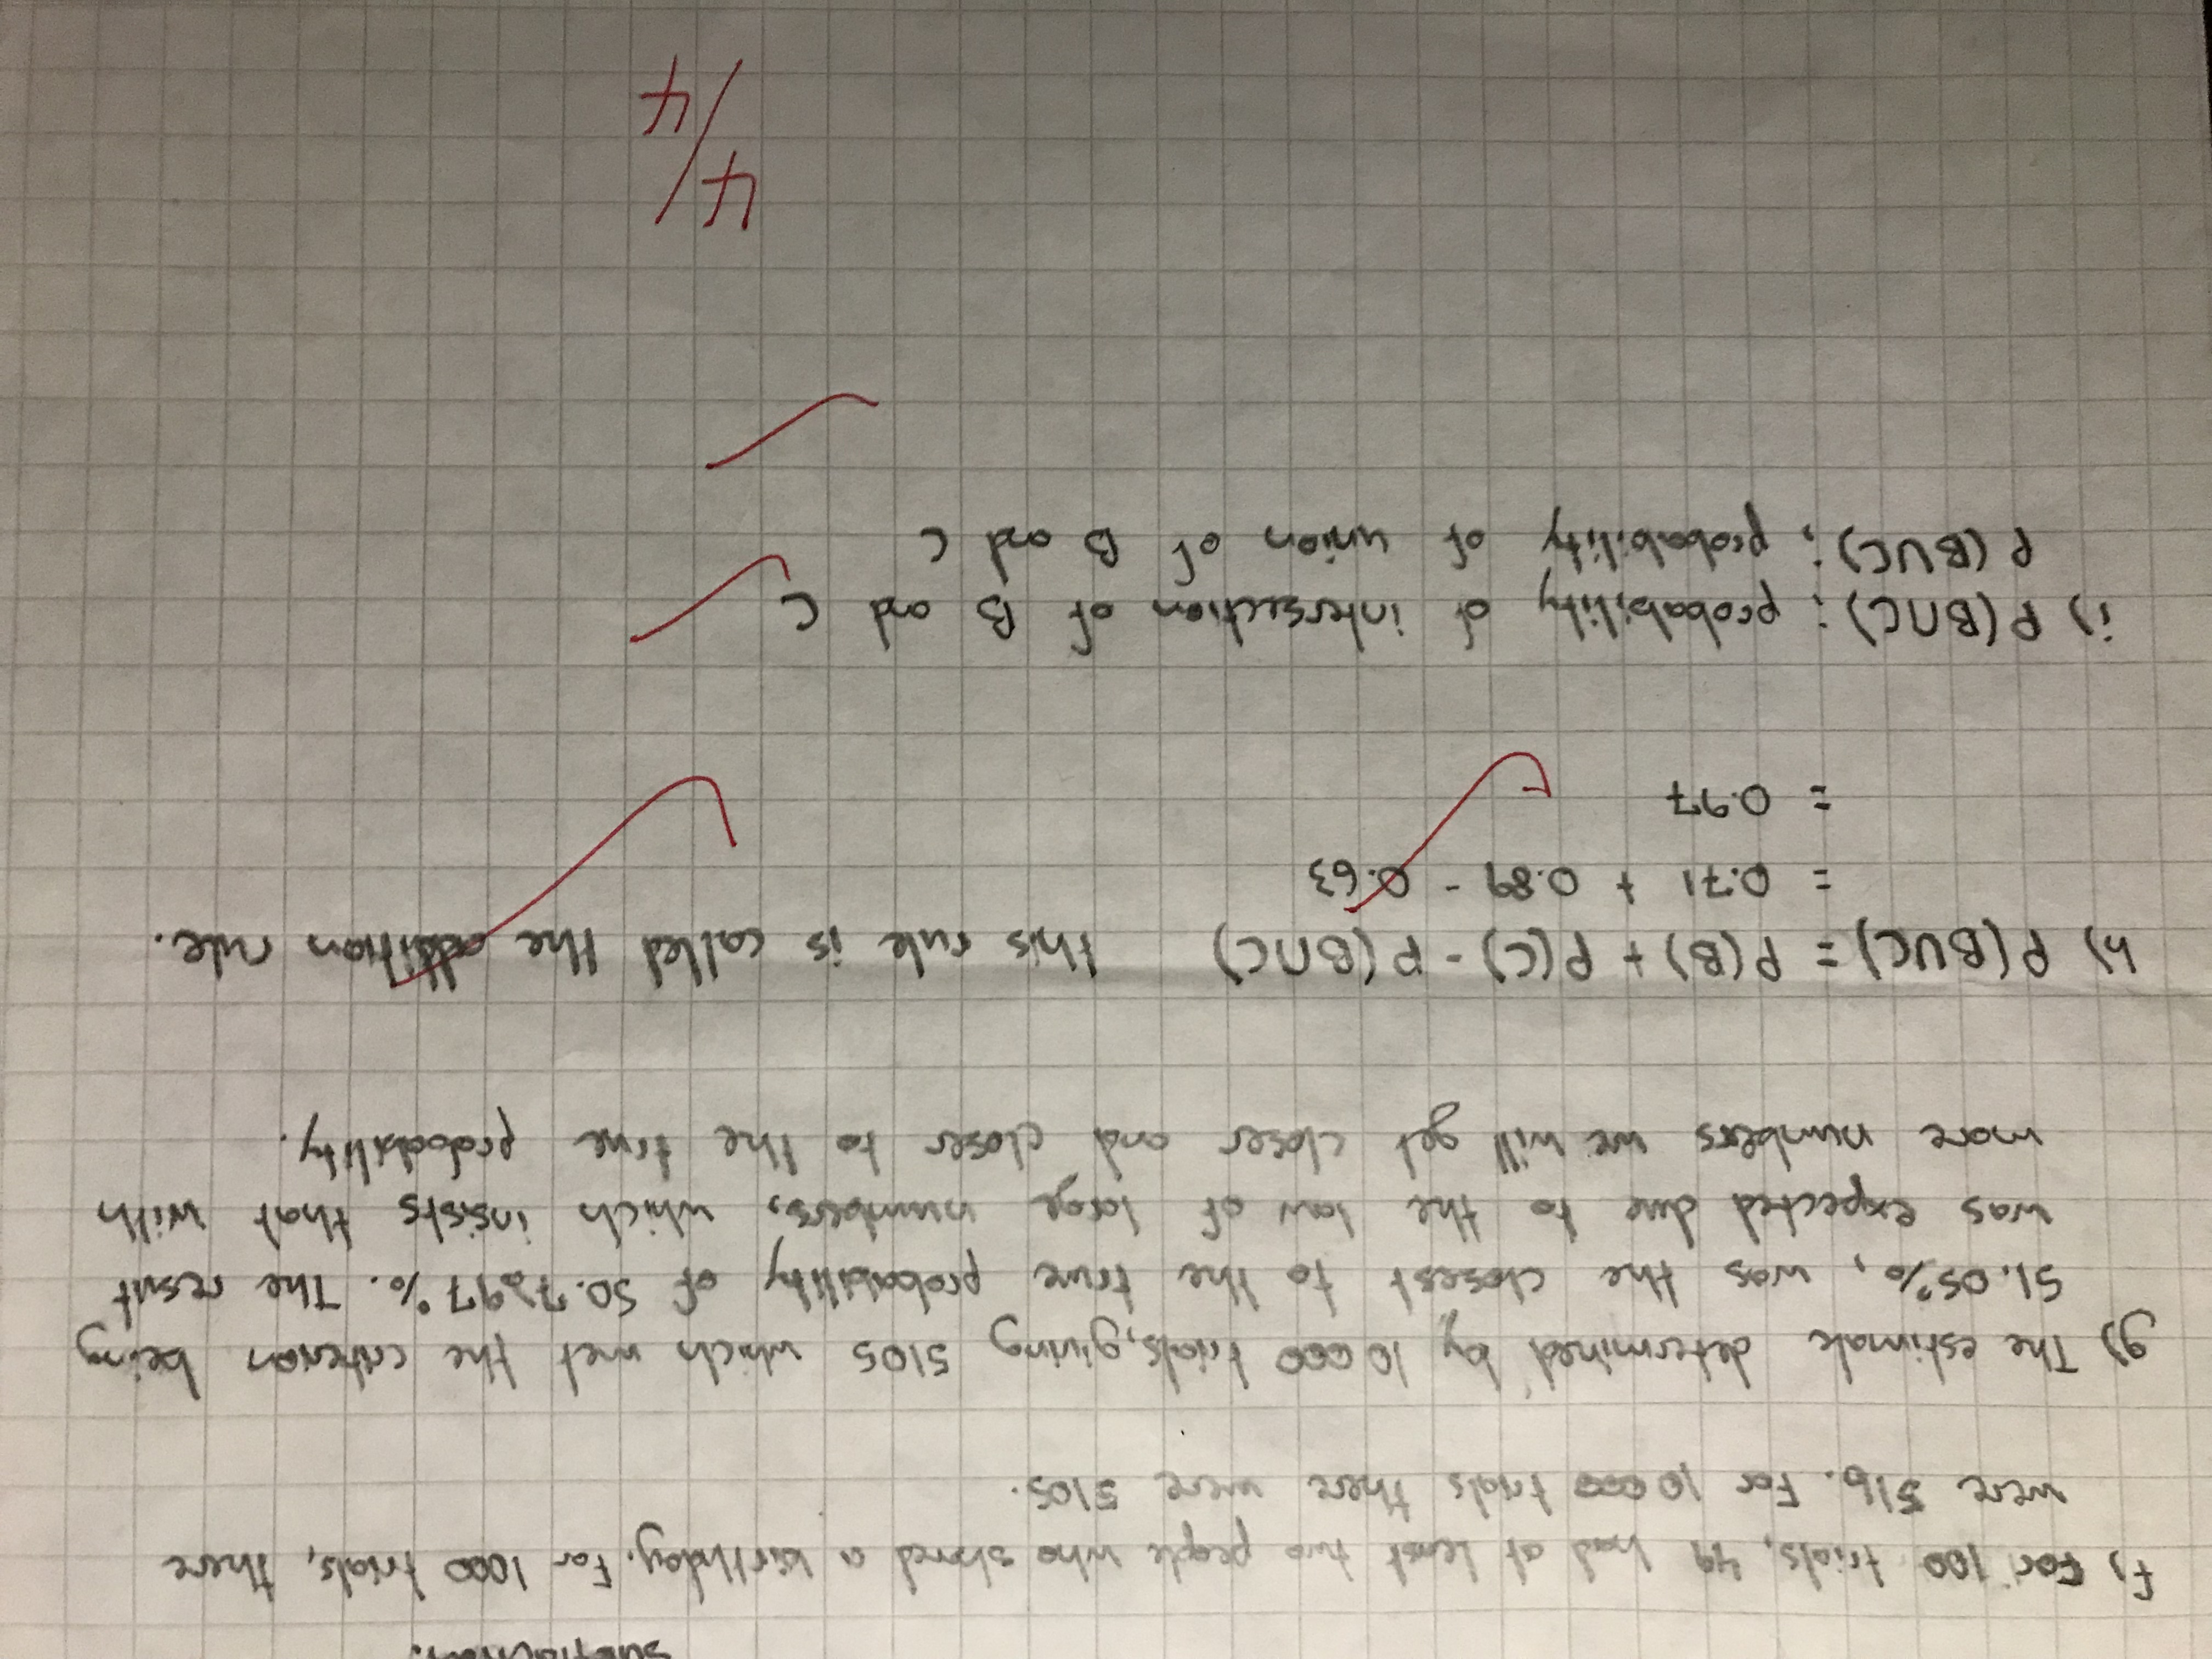 f) For 100 trials, 49 had at least two people who shared a birthday. For 1000 trials, there
were 516. For 10000 trials there were 5105.
g) The estimate determined by 10000 trials, giving 5105 which met the criterion being
51.05%, was the closest to the true probability of 50.7297%. The result
was expected due to the law of large numbers, which insists that with
more numbers we will get closer and closer to the true probability.
h) P(B∪C) = P(B) + P(C) - P(B∩C) this rule is called the addition rule.
= 0.71 + 0.89 - 0.63
= 0.97
i) P(B∩C): probability of intersection of B and C
P(B∪C): probability of union of B and C
4/4